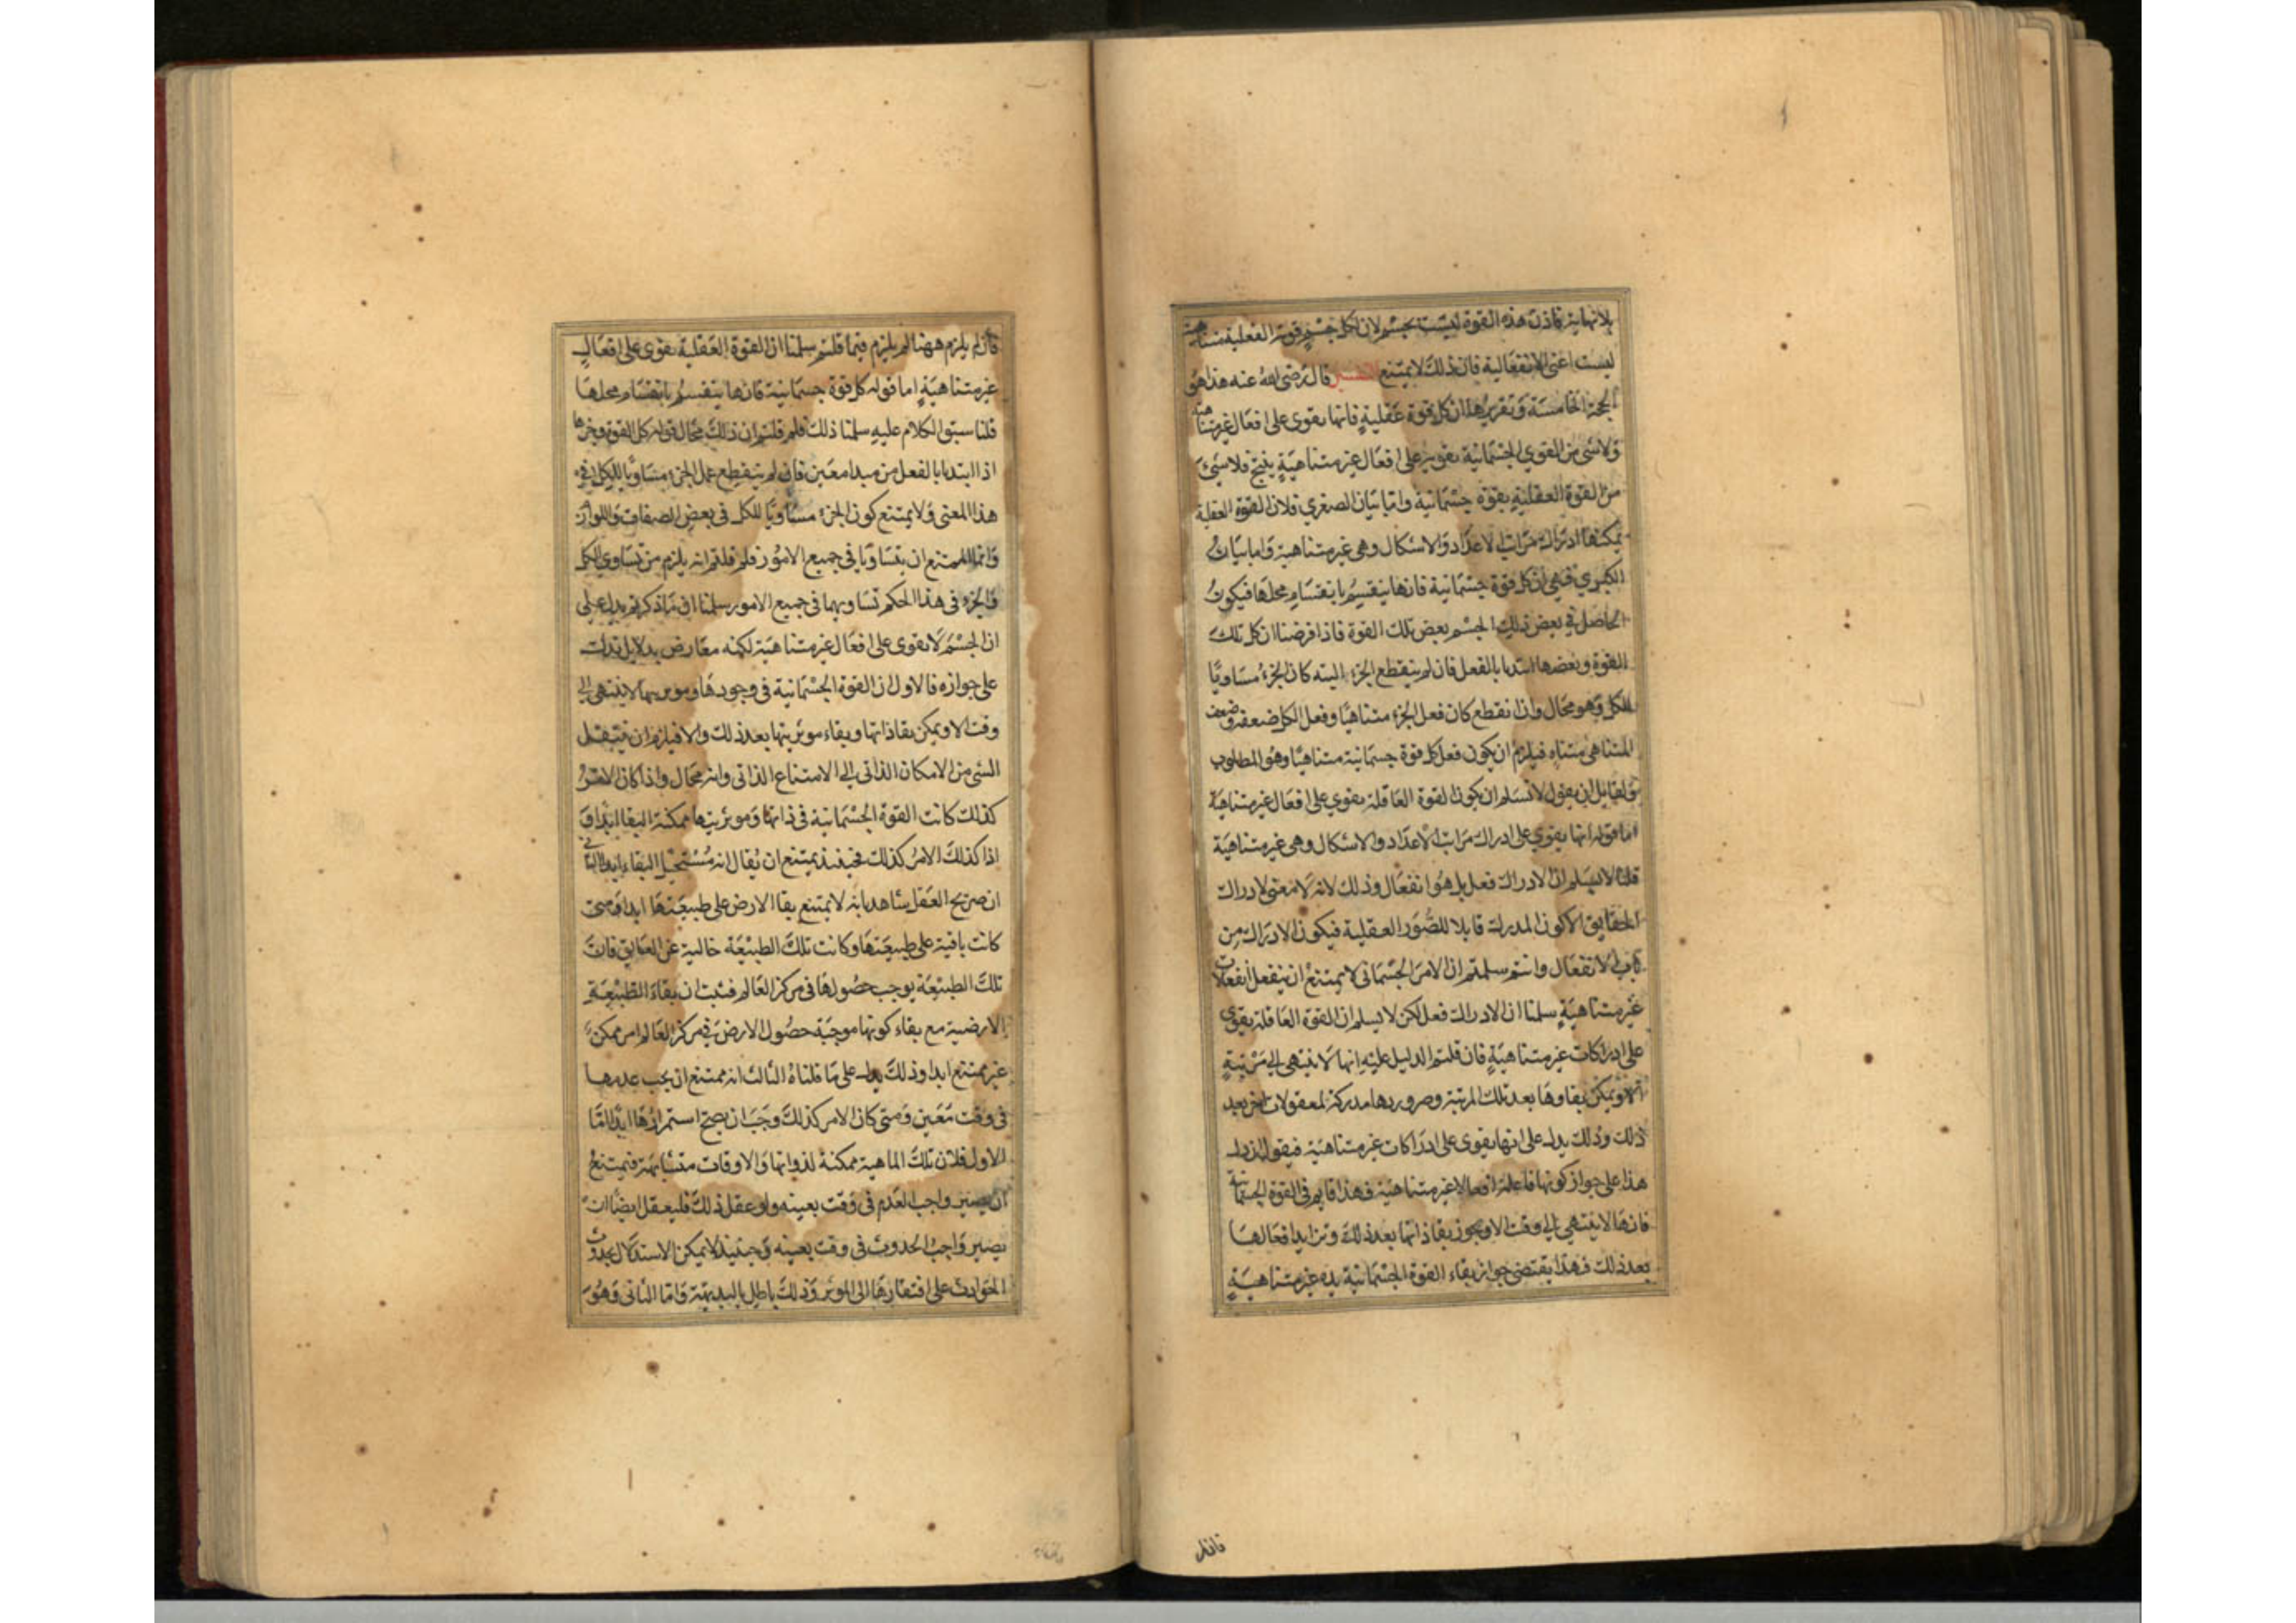 بلا نهاية فاذن هذه القوة ليست بجسم لان كل جسم قوته الفعلية متناهية
ليست اعنى الانفعالية فان ذلك لا يمتنع التفسير قال رضى الله عنه هذا هو
الحجة الخامسة وتقريرها ان كل قوة عقلية فانها يقوى على افعال غير متناهية
ولا شى من القوى الجسمانية يقوى على افعال غير متناهية ينتج فلا شئ
من القوة العقلية بقوة جسمانية واما بيان الصغرى فلان القوة العقلية
يمكنها ادراك مراتب الاعداد والاشكال وهى غير متناهية واما بيان
الكبرى فهى ان كل قوة جسمانية فانها ينقسم بانقسام محلها فيكون
الحاصل فى بعض ذلك الجسم بعض تلك القوة فاذا فرضنا ان كل تلك
القوة وبعضها ابتدأ بالفعل فان لم ينقطع الجزء البته كان الجزء مساويا
للكل وهو محال وان انقطع كان فعل الجزء متناهيا وفعل الكل ضعفه وضعف
المتناهى متناه فيلزم ان يكون فعل كل قوة جسمانية متناهيا وهو المطلوب
ولقايل ان يقول لا نسلم ان يكون القوة العاقلة يقوى على افعال غير متناهية
اما قوله انها يقوى على ادراك مراتب الاعداد والاشكال وهى غير متناهية
قلنا لا نسلم ان الادراك فعل بل هو انفعال وذلك لانه لا معنى لادراك
الحقايق الا كون المدرك قابلا للصور العقلية فيكون الادراك من
باب الانفعال وانتم سلمتم ان الامر الجسمانى لا يمتنع ان ينفعل انفعالات
غير متناهية سلمنا ان الادراك فعل لكن لا نسلم ان القوة العاقلة يقوى
على ادراكات غير متناهية فان قلتم الدليل عليه انها لا ينتهى الى مرتبة
الا ويمكن بقاوها بعد تلك المرتبة وصرورىها مدركة لمعقولات اخر بعد
ذلك وذلك يدل على انها يقوى على ادراكات غير متناهية فيقول ان دل
هذا على جواز كونها فاعلة افعالا غير متناهية فهذا قايم فى القوة الجسمانية
فانها لا ينتهى الى وقت الا ويجوز بقا ذاتها بعد ذلك وتزايد افعالها
بعد ذلك فهذا يقتضى جواز بقاء القوة الجسمانية يده غير متناهية
فان لم يلزم ههنا لم يلزم فيما قلتم سلمنا ان القوة العقلية يقوى على افعال
غير متناهية اما قوله كل قوة جسمانية فانها ينقسم بانقسام محلها
قلنا سبق الكلام عليه سلمنا ذلك فلم قلتم ان ذلك محال قوله كل القوة وجزءها
اذا ابتدا بالفعل من مبدا معين فان لم ينقطع عمل الجزء مساويا للكل فى
هذا المعنى ولا يمتنع كون الجزء مساويا للكل فى بعض الصفات واللوازم
وانما الممتنع ان يتساويا فى جميع الامور فلم قلتم انه يلزم من تساوى الكل
والجزء فى هذا الحكم تساويهما فى جميع الامور سلمنا ان ما ذكرتم يدل على
ان الجسم لا يقوى على افعال غير متناهية لكنه معارض بدلايل تدل
على جوازه فالاول ان القوة الجسمانية فى وجودها وموثريتها لا ينتهى الى
وقت الا ويمكن بقا ذاتها وبقاء موثريتها بعد ذلك والا فيلزم ان ينتقل
الشى من الامكان الذاتى الى الامتناع الذاتى وانه محال واذا كان الامر
كذلك كانت القوة الجسمانية فى ذاتها وموثريتها ممكنة البقا ابدا و
اذا كذلك الامر كذلك فحينئذ يمتنع ان يقال انه مستحيل البقاء ابدا الثانى
ان صريح العقل شاهد بانه لا يمتنع بقا الارض على طبيعتها ابدا ومتى
كانت باقية على طبيعتها وكانت تلك الطبيعة خالية عن العايق فان
تلك الطبيعة يوجب حصولها فى مركز العالم فثبت ان بقاء الطبيعة
الارضية مع بقاء كونها موجبة حصول الارض فى مركز العالم امر ممكن
غير ممتنع ابدا وذلك يدل على ما قلناه الثالث انه ممتنع ان يجب عدمها
فى وقت معين ومتى كان الامر كذلك وجب ان يصح استمرارها ابدا اما
الاول فلان تلك الماهية ممكنة لذواتها والاوقات متشابهة فيمتنع
ان يصير واجب العدم فى وقت بعينه ولو عقل ذلك فليعقل ايضا ان
يصير واجب الحدوث فى وقت بعينه وحينئذ لا يمكن الاستدلال بحدوث
الحوادث على افتقارها الى الموثر وذلك باطل بالبديهة واما الثانى وهو